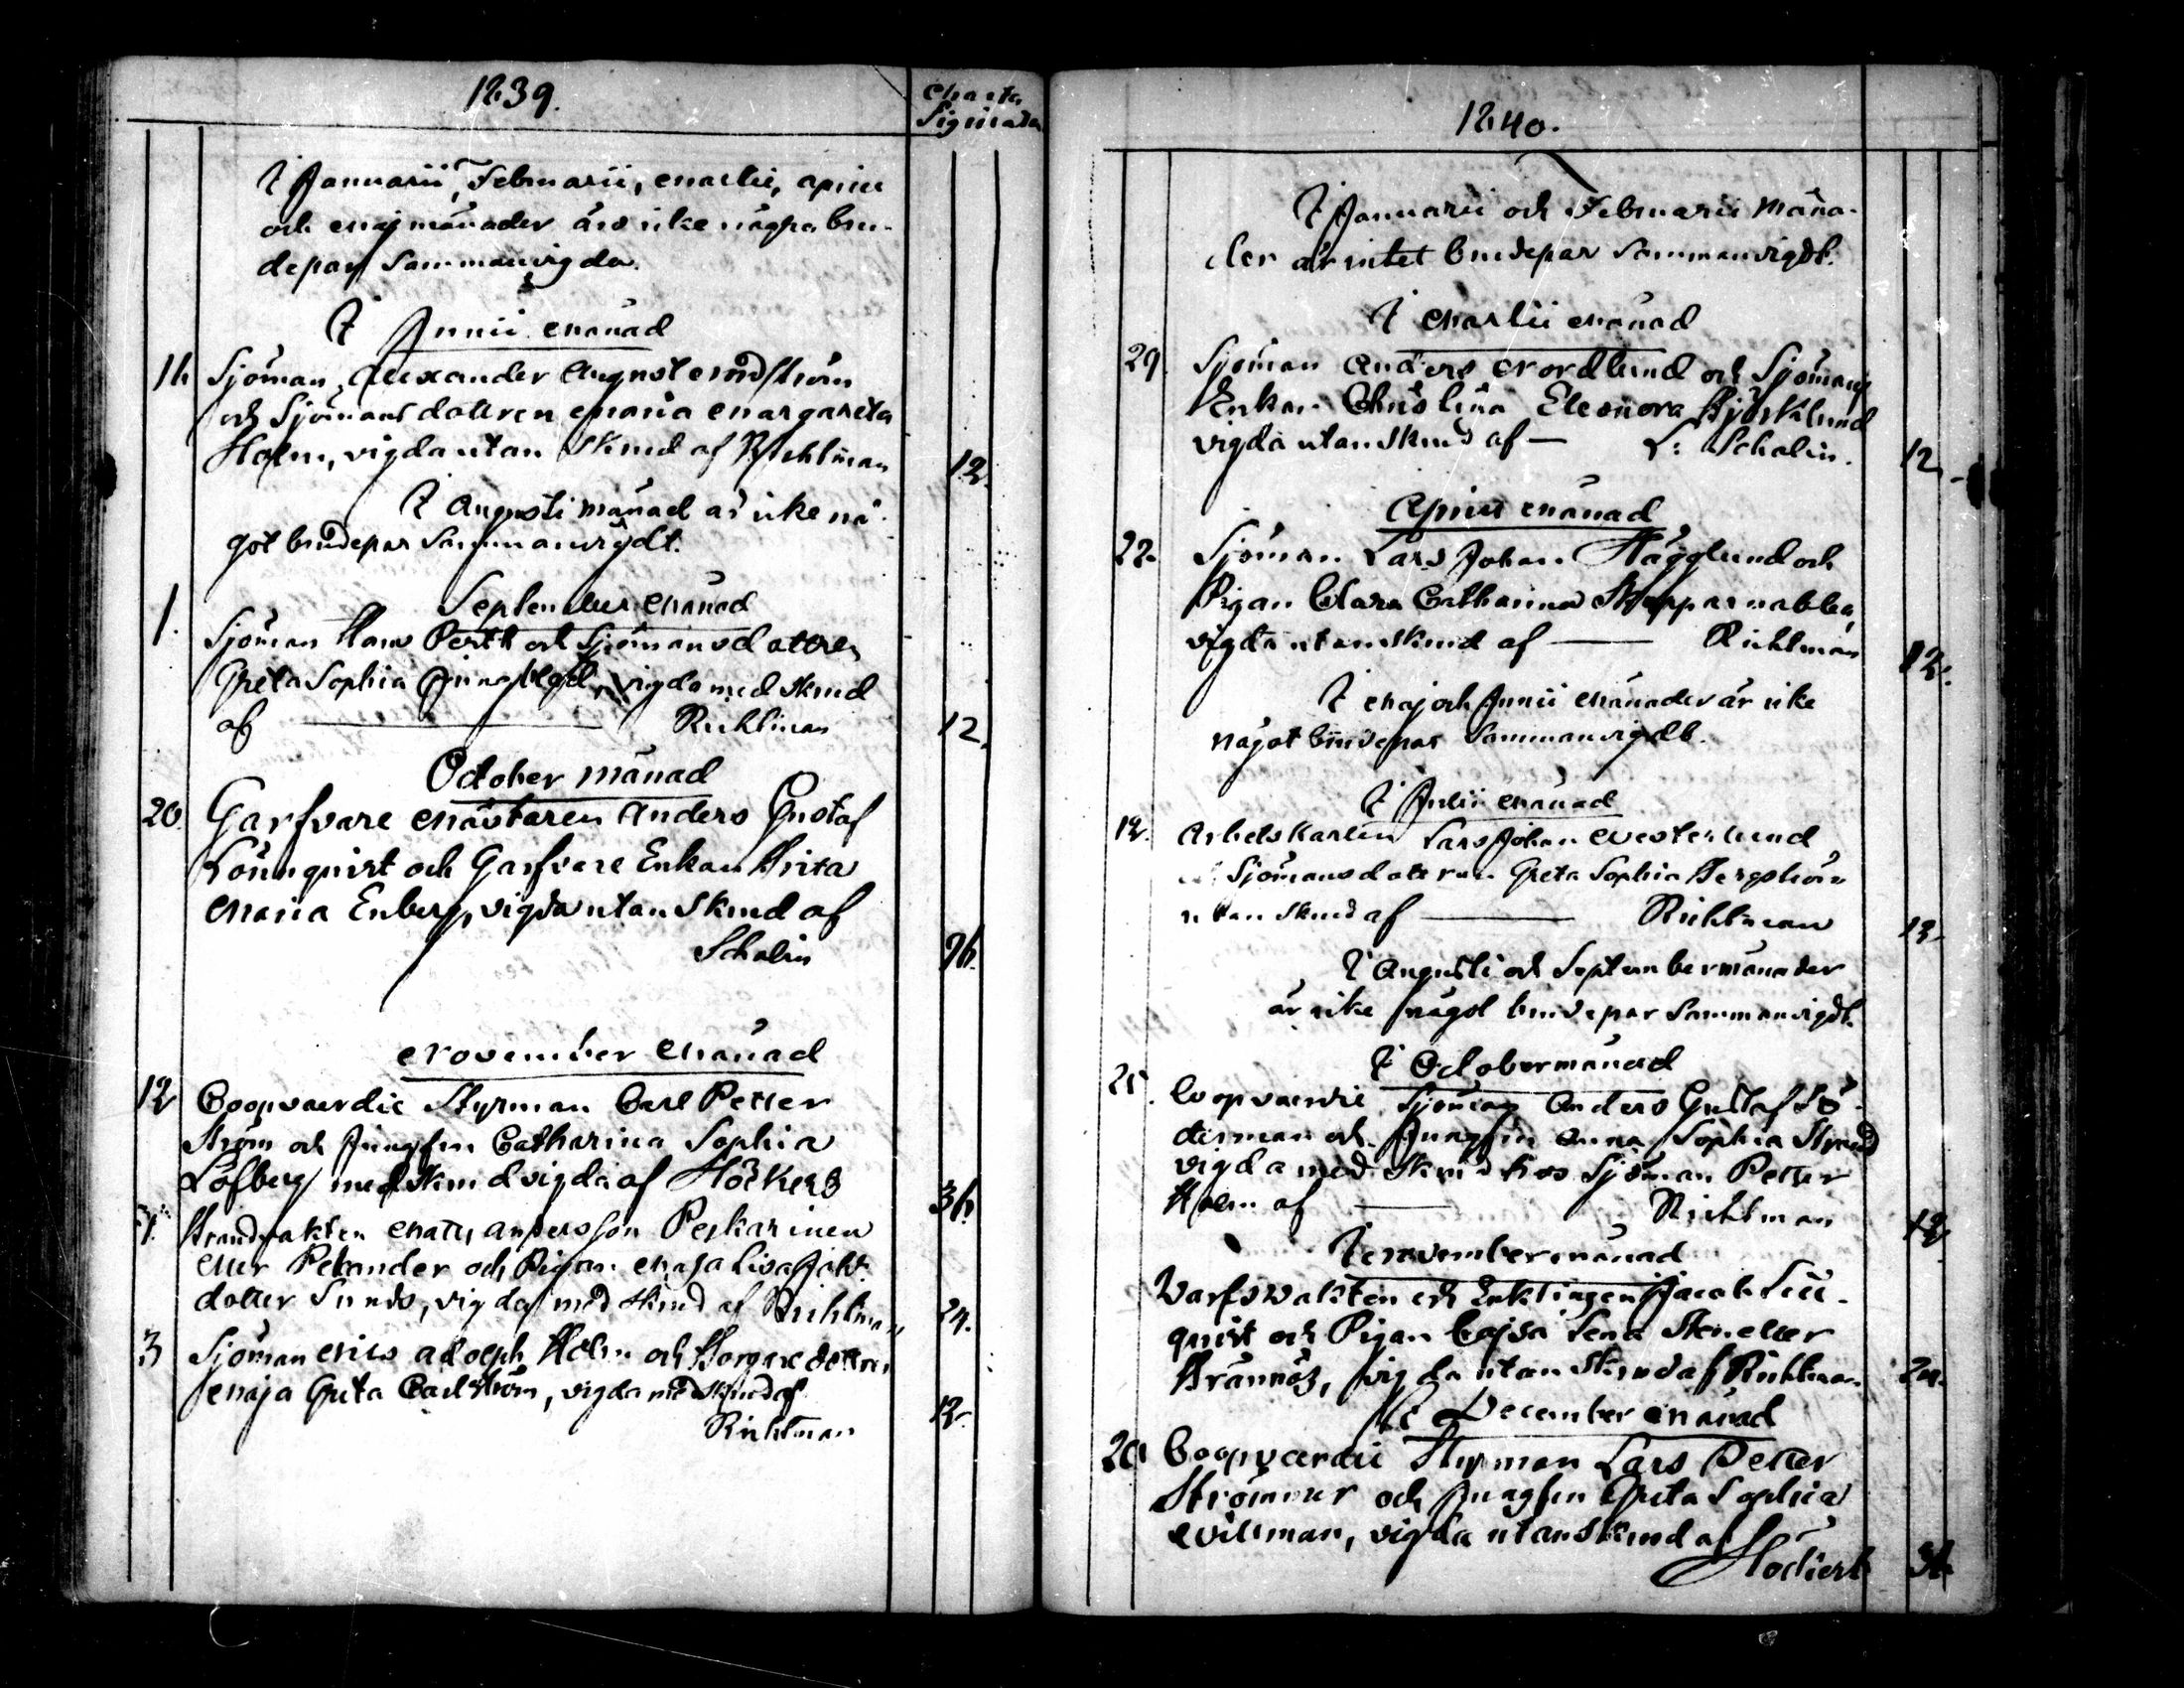 1839.
Charta
Sigillata
I Januarii, Februarii, Martii, April
och Maj månader äro icke några bru-
depar Sammanvigda.
I Junii Månad
16 Sjöman Alexander August
och Sjömansdottren Maria Margareta
Holm, vigda utan Skrud af Richtman 12.
I Augusti månad är icke nå-
got brudepar Sammanvigdt.
September Månad
1. Sjöman Hans Perth och Sjömansdottren
Greta Sophia vigda med Skrud
af Richtman 12.
October månad
20. Garfvare Mästaren Anders Gustaf
Lönnquist och Garfvare Enkan Brita
Maria Enberg, vigda utan Skrud af
Schalin 96.
November Månad
12 Coopvaerdie Styrman Carl Petter
Ström och Jungfru Catharina Sophia
Löfberg med Skrud vigda af Höckert 36.
Strandvakten Matts Andersson Peskarinen
eller Pekander och Pigan Maja Lisa Jahs
dotter Sunds, vigda med Skrud af Richtman 24.
3 Sjöman Nils Adolph Holm och Borgaredottren
Maja Greta Carlström, vigda med Skrud af
Richtman 12.
1840.
I Januarii och Februarii Måna-
der är intet brudepar Sammanvigdt.
I Martii Månad
29. Sjöman Anders Nordlund och Sjömans
Enkan Christina Eleonora Björklund
vigda utan Skrud af L: Schalin. 12.
April Månad
22. Sjöman Lars Johan Hägglund och
Pigan Clara Catharina
vigda utan Skrud af Richtman 12.
I Maj och Junii Månader är icke
något brudepar Sammanvigdt.
I Julii Månad
12. Arbetskarlen Lars Johan Westerlund
och Sjömansdottren Greta Sophia Bergström
utan Skrud af Richtman 12.
I Augusti och September månader
är icke något brudepar Sammanvigdt.
I October månad
25. Coopvaerdie Sjöman Anders Gustaf Sö-
derman och Jungfru Anna Sophia Strand
vigda med Skrud hos Sjöman Petter
Holm af Richtman 12
I November månad
Varfsvakten och Enklingen Jacob
quist och Pigan Cajsa Lena
Brännäs, vigda utan Skrud af Richtman. 24.
I December Månad
20 Coopvaerdie Styrman Lars Petter
Strömmer och Jungfru Greta Sophia
Willman, vigda utan Skrud af
Höckert 36.